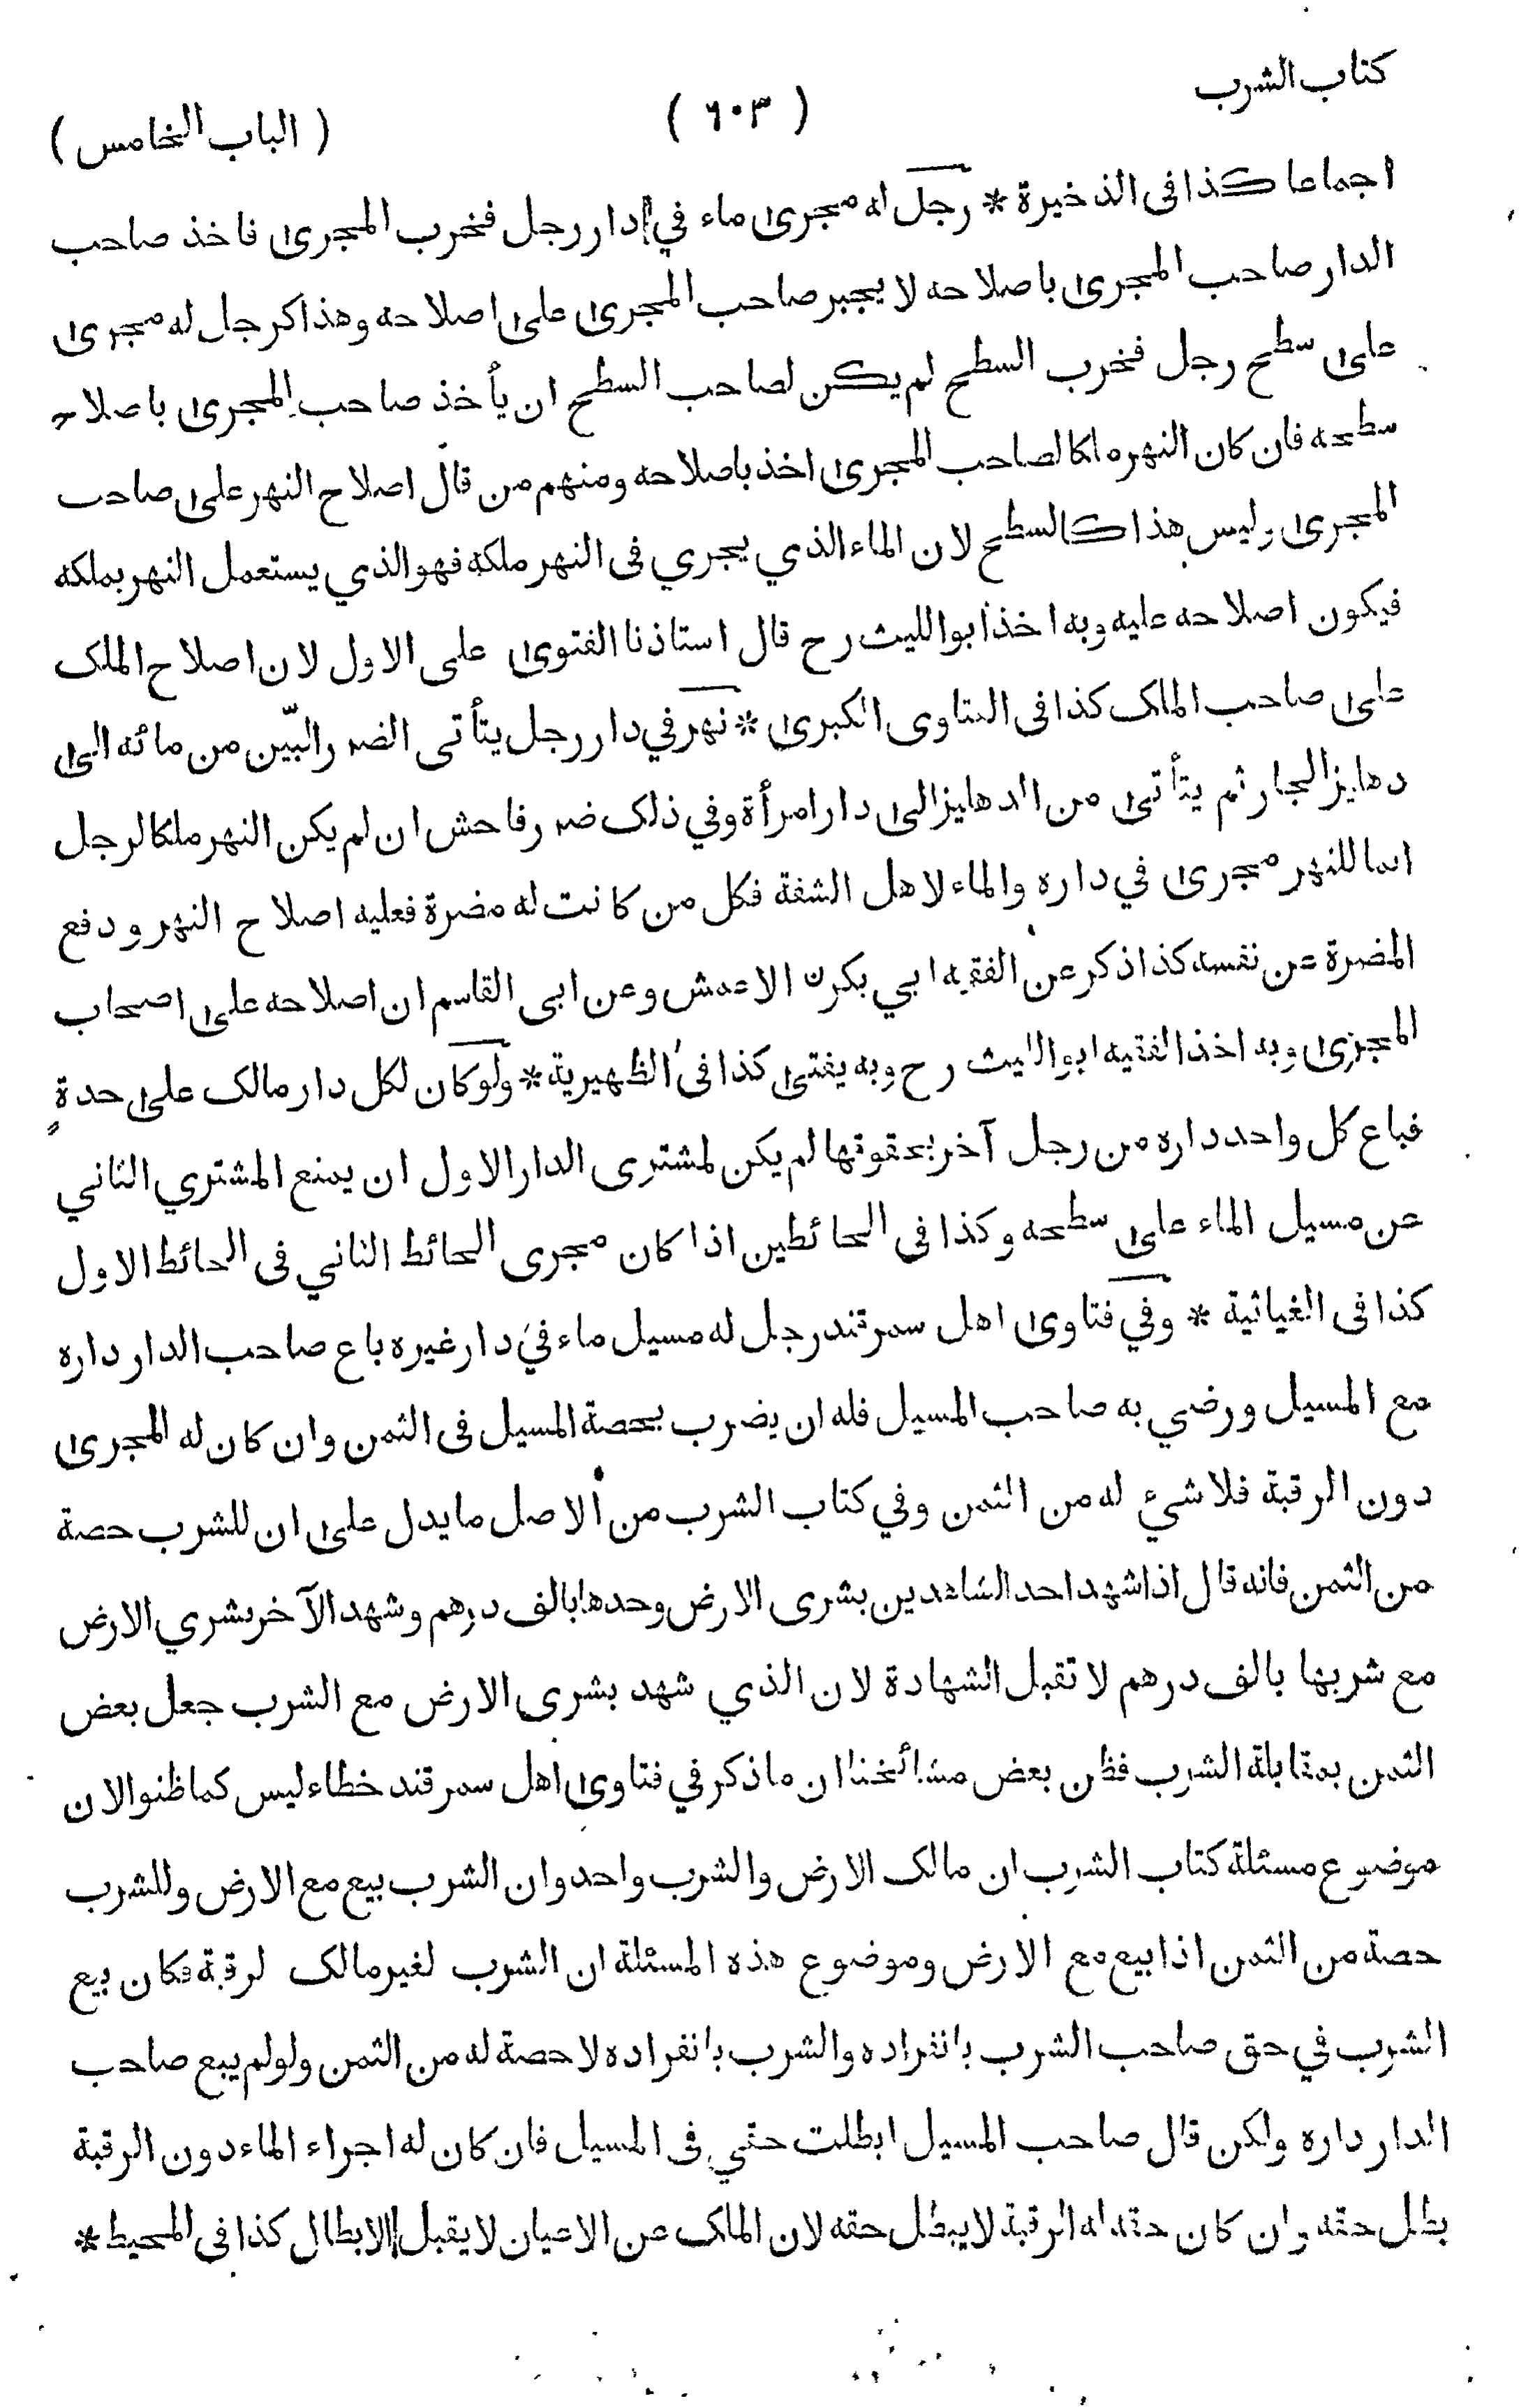 كتاب الشرب
( ٦٠٣ )
( الباب الخامس )
اجماعا كذا فى الذخيرة * رجل له مجرى ماء في دار رجل فخرب المجرى فاخذ صاحب
الدار صاحب المجرى باصلاحه لا يجبر صاحب المجرى على اصلاحه وهذا كرجل له مجرى
على سطح رجل فخرب السطح لم يكن لصاحب السطح ان يأخذ صاحب المجرى باصلاح
سطحه فان كان النهر ملكا لصاحب المجرى اخذ باصلاحه ومنهم من قال اصلاح النهر على صاحب
المجرى وليس هذا كالسطح لان الماء الذي يجري فى النهر ملكه فهو الذي يستعمل النهر بملكه
فيكون اصلاحه عليه وبه اخذ ابو الليث رح قال استاذنا الفتوى على الاول لان اصلاح الملك
على صاحب الملك كذا فى الفتاوى الكبرى * نهر في دار رجل يتأتى الضرر البيّن من مائه الى
دهليز الجار ثم يتأتى من الدهليز الى دار امرأة وفي ذلك ضرر فاحش ان لم يكن النهر ملكا لرجل
انما للنهر مجرى في داره والماء لاهل الشفة فكل من كانت له مضرة فعليه اصلاح النهر ودفع
المضرة عن نفسه كذا ذكر عن الفقيه ابي بكرن الاعمش وعن ابى القاسم ان اصلاحه على اصحاب
المجرى وبه اخذ الفقيه ابو الليث رح وبه يفتى كذا فى الظهيرية * ولو كان لكل دار مالك على حدة
فباع كل واحد داره من رجل آخر بحقوقها لم يكن لمشترى الدار الاول ان يمنع المشتري الثاني
عن مسيل الماء على سطحه وكذا فى الحائطين اذا كان مجرى الحائط الثاني فى الحائط الاول
كذا فى الغياثية * وفي فتاوى اهل سمرقند رجل له مسيل ماء في دار غيره باع صاحب الدار داره
مع المسيل ورضي به صاحب المسيل فله ان يضرب بحصة المسيل فى الثمن وان كان له المجرى
دون الرقبة فلا شيء له من الثمن وفي كتاب الشرب من الاصل ما يدل على ان للشرب حصة
من الثمن فانه قال اذا شهد احد الشاهدين بشرى الارض وحدها بالف درهم وشهد الآخر بشري الارض
مع شربها بالف درهم لا تقبل الشهادة لان الذي شهد بشرى الارض مع الشرب جعل بعض
الثمن بمقابلة الشرب فظن بعض مشائخنا ان ما ذكر في فتاوى اهل سمرقند خطاء ليس كما ظنوا لان
موضوع مسئلة كتاب الشرب ان مالك الارض والشرب واحد وان الشرب بيع مع الارض وللشرب
حصة من الثمن اذا بيع مع الارض وموضوع هذه المسئلة ان الشرب لغير مالك لرقبة فكان بيع
الشرب في حق صاحب الشرب بانفراده والشرب بانفراده لا حصة له من الثمن ولو لم يبع صاحب
الدار داره ولكن قال صاحب المسيل ابطلت حقي فى المسيل فان كان له اجراء الماء دون الرقبة
بطل حقه وان كان حقه له الرقبة لا يبطل حقه لان الملك عن الاعيان لا يقبل الابطال كذا فى المحيط *